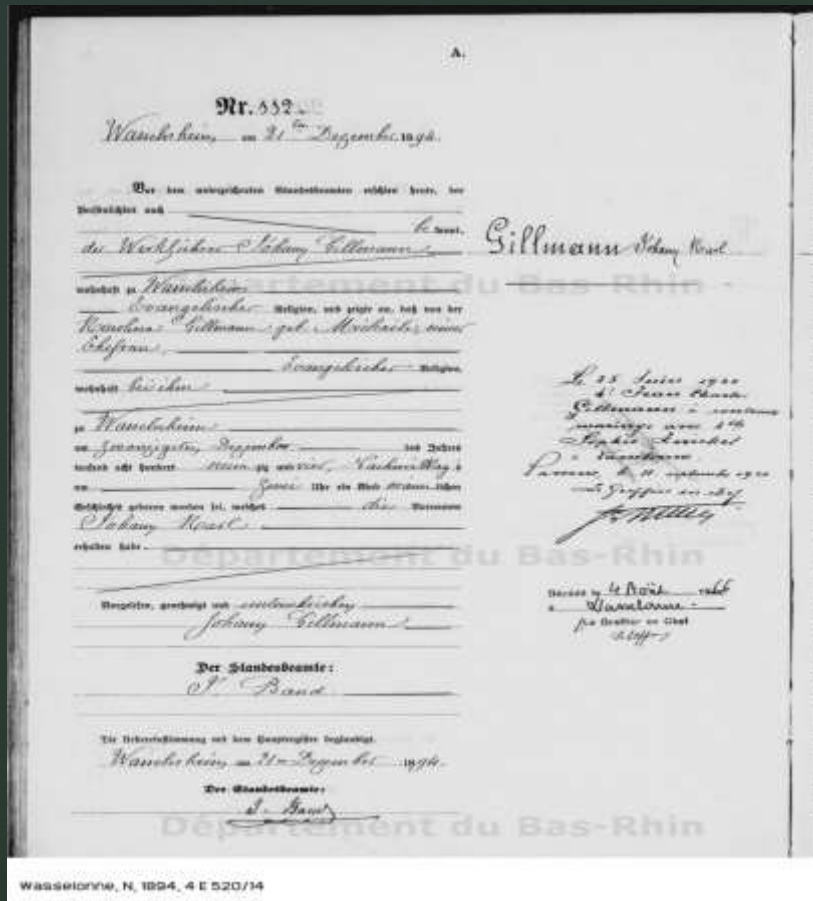 A.
Nr. 112.
Wasselnheim, am 21ten Dezember 1894.
Vor dem unterzeichneten Standesbeamten erschien heute, der
Persönlichkeit nach
be kannt,
der Werkführer Johann Gillmann
wohnhaft zu Wasselnheim
Evangelischer Religion, und zeigte an, daß von der
Karolina Gillmann geb. Michaelis, seiner
Ehefrau,
Evangelischer Religion,
wohnhaft bei ihm
zu Wasselnheim
am zwanzigsten Dezember des Jahres
tausend acht hundert neun zig und vier, Nachmittag s
um zwei Uhr ein Kind männ lichen
Geschlechts geboren worden sei, welches die Vornamen
Johann Karl
erhalten habe.
Vorgelesen, genehmigt und unterschrieben
Johann Gillmann
Der Standesbeamte:
Band
Die Uebereinstimmung mit dem Hauptregister beglaubigt.
Wasselnheim, am 21ten Dezember 1894.
Der Standesbeamte:
Band
Gillmann Johann Karl
Le 25 1920
Jean
Gillmann a contracté
mariage avec
Sophie
à
le 11 septembre 1920
Le Greffier en chef
Décédé le 4 Août 1966
à Wasselonne
Le Greffier en Chef
Département du Bas-Rhin
Département du Bas-Rhin
Département du Bas-Rhin
Wasselonne, N, 1894, 4 E 520/14